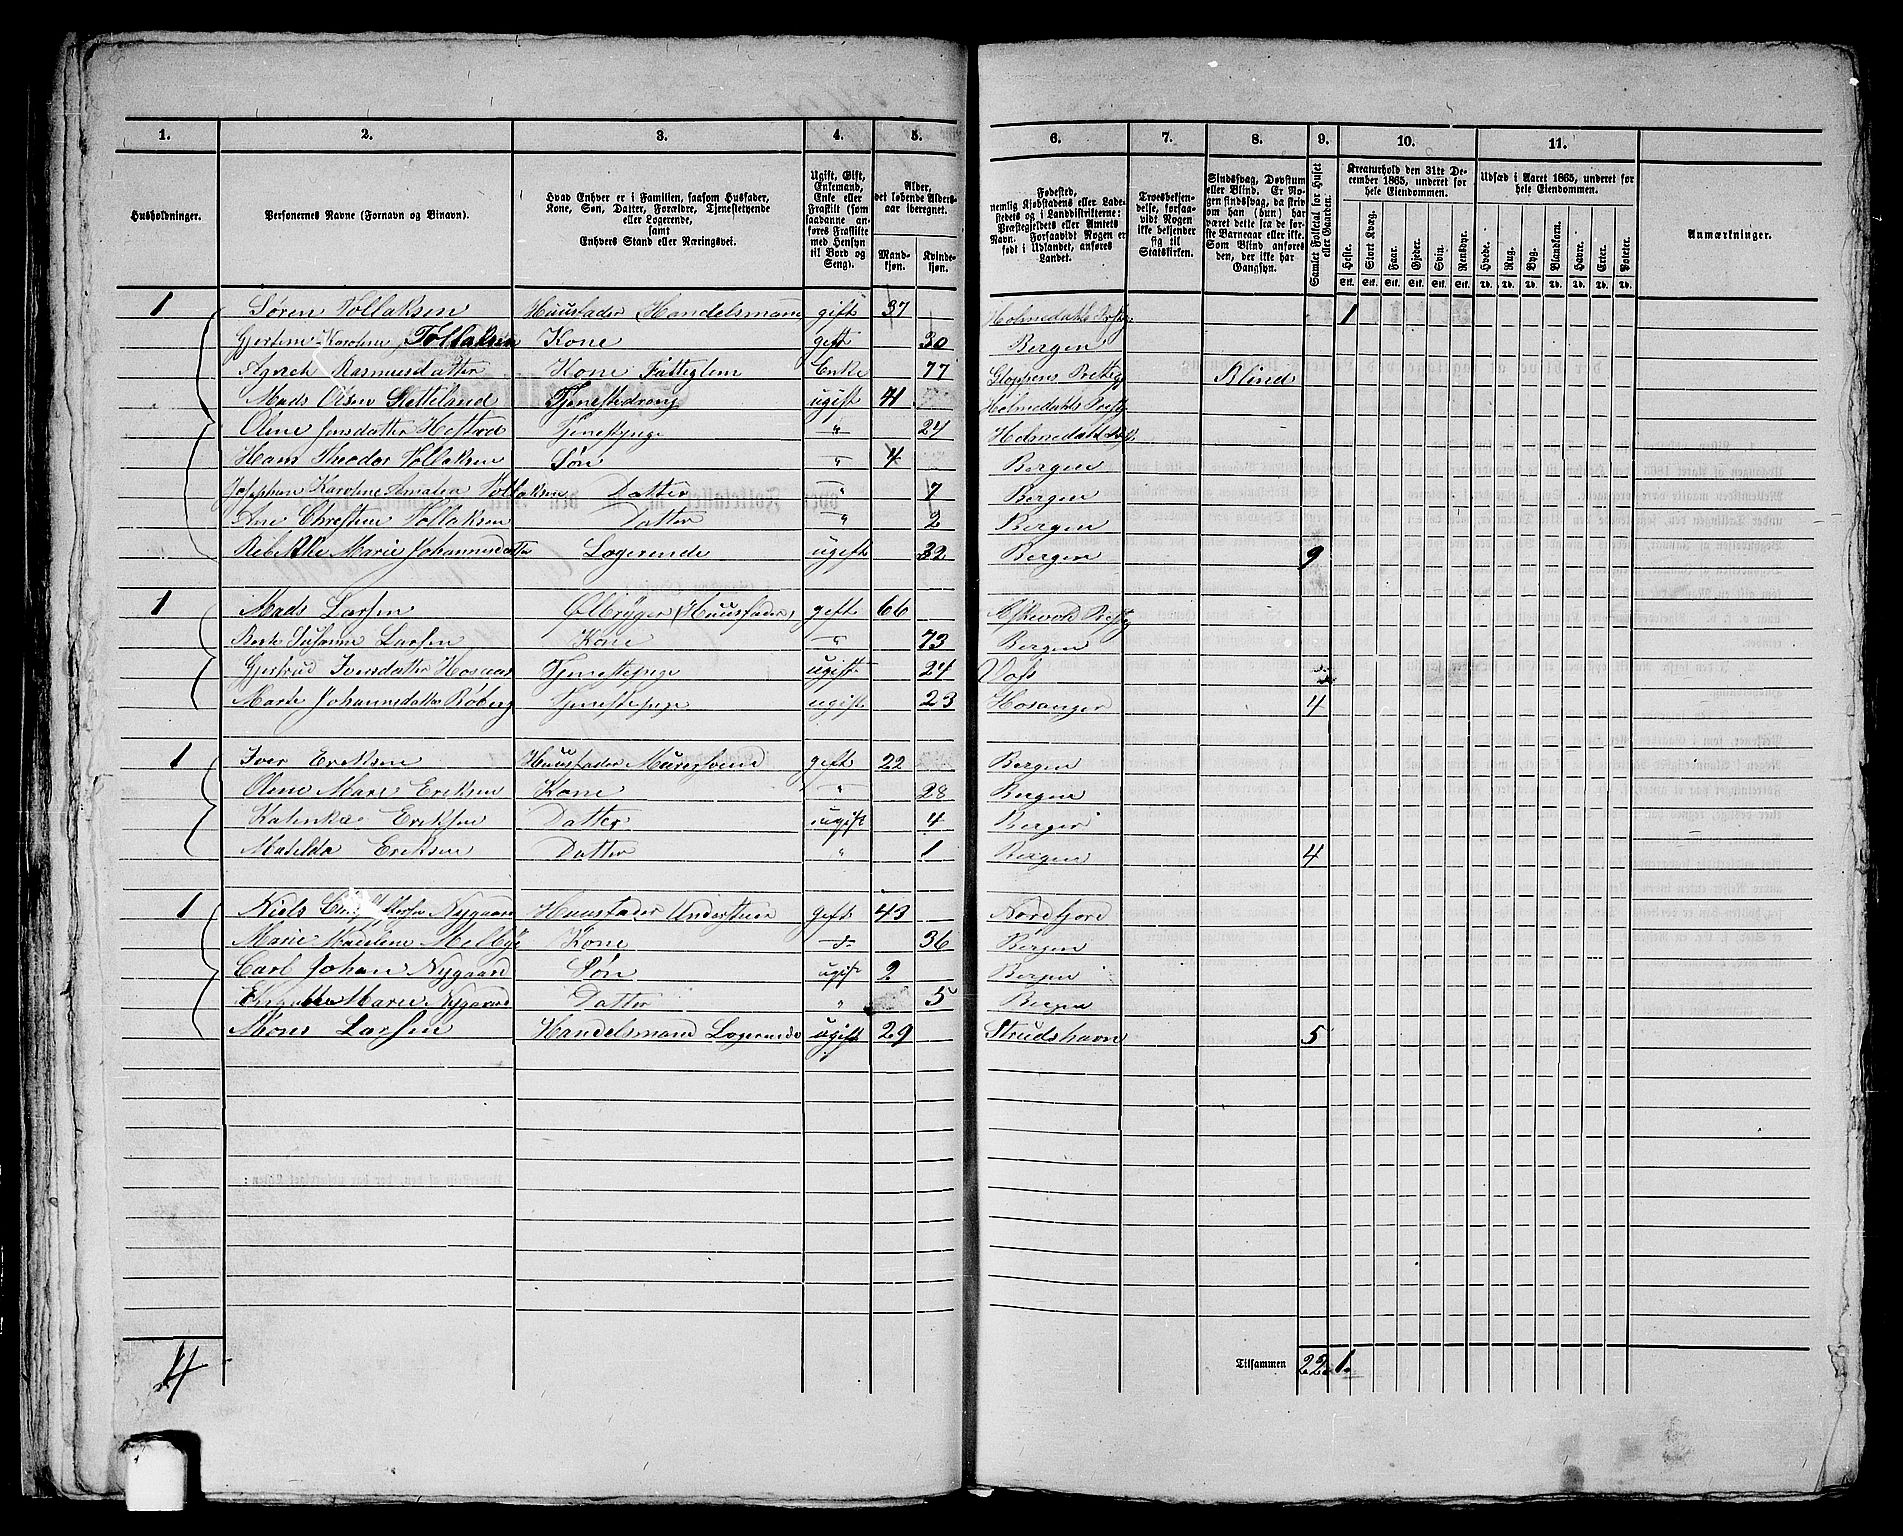 1. 2. 3. 4. 5. 6. 7. 8. 9. 10. 11.
Husholdninger.
Personernes Navne (Fornavn og Binavn).
Hvad Enhver er i Familien, saasom Husfader, Kone, Søn, Datter, Forældre, Tjenestetyende eller Logerende, samt Enhvers Stand eller Næringsvei.
Ugift, Gift, Enkemand, Enke eller Fraskilt (som saadanne anføres Fraskilte med Hensyn til Bord og Seng).
Alder, det løbende Aldersaar iberegnet.
Mandkjøn. Kvindekjøn.
Fødested, nemlig Kjøbstadens eller Ladestedets og i Landdistrikterne: Præstegjeldets eller Amtets Navn. Forsaavidt Nogen er født i Udlandet, anføres Landet.
Troesbekjendelse, forsaavidt Nogen ikke bekjender sig til Statskirken.
Sindssvag, Døvstum eller Blind. Er Nogen sindssvag, da skriv om han (hun) har været dette fra de første Barneaar eller ikke. Som Blind anføres den, der ikke har Gangsyn.
Samlet Folketal for Huset eller Gaarden.
Kreaturhold den 31te December 1865, underet for hele Eiendommen.
Heste. Stort Kvæg. Faar. Gjeder. Svin. Rensdyr.
Udsæd i Aaret 1865, underet for hele Eiendommen.
Hvede. Rug. Byg. Blandkorn. Havre. Erter. Poteter.
Anmærkninger.
1 Søren Tollaksen Huusfader Handelsmann gift 37 Holmedahls Prstg 1
Karoline Tollaksen Kone gift 30 Bergen
Rasmusdatter Kone Fattiglem Enke 77 Gloppens Prstg Blind
Mads Olsen Sletteland Tjenestedreng ugift 41 Holmedahls Prstg
Oline Jensdatter Hestad Tjenestpige " 24 Holmedahls
Hans Theodor Tollaksen Søn " 4 Bergen
Josephine Karoline Amalia Tollaksen Datter " 7 Bergen
Ane Christine Tollaksen Datter " 2 Bergen
Rebekke Marie Johannesdatter Logerende ugift 32 Bergen 9
1 Mads Larsen Ølbrÿger (Huusfader) gift 66 Askevold Prstg
Berte Susanne Larsen Kone " 73 Bergen
Gjertrud Iversdatter Tjenestepige ugift 24 Vos
Marte Johannesdatter Tjenestepige ugift 23 Hosanger 4
1 Iver Eriksen Huusfader Muursvend gift 22 Bergen
Oline Marie Eriksen Kone " 28 Bergen
Katinka Eriksen Datter ugift 4 Bergen
Matilda Eriksen Datter " 1 Bergen 4
1 Niels Nygaard Huusfader gift 43 Nordfjord
Marie Madelene Melbye Kone 36 Bergen
Carl Johan Nygaard Søn ugift 2 Bergen
Marie Nygaard Datter " 5 Bergen
Mons Larsen Handelsmand Logerende ugift 29 Strudshavn 5
4 Tilsammen 22 1.